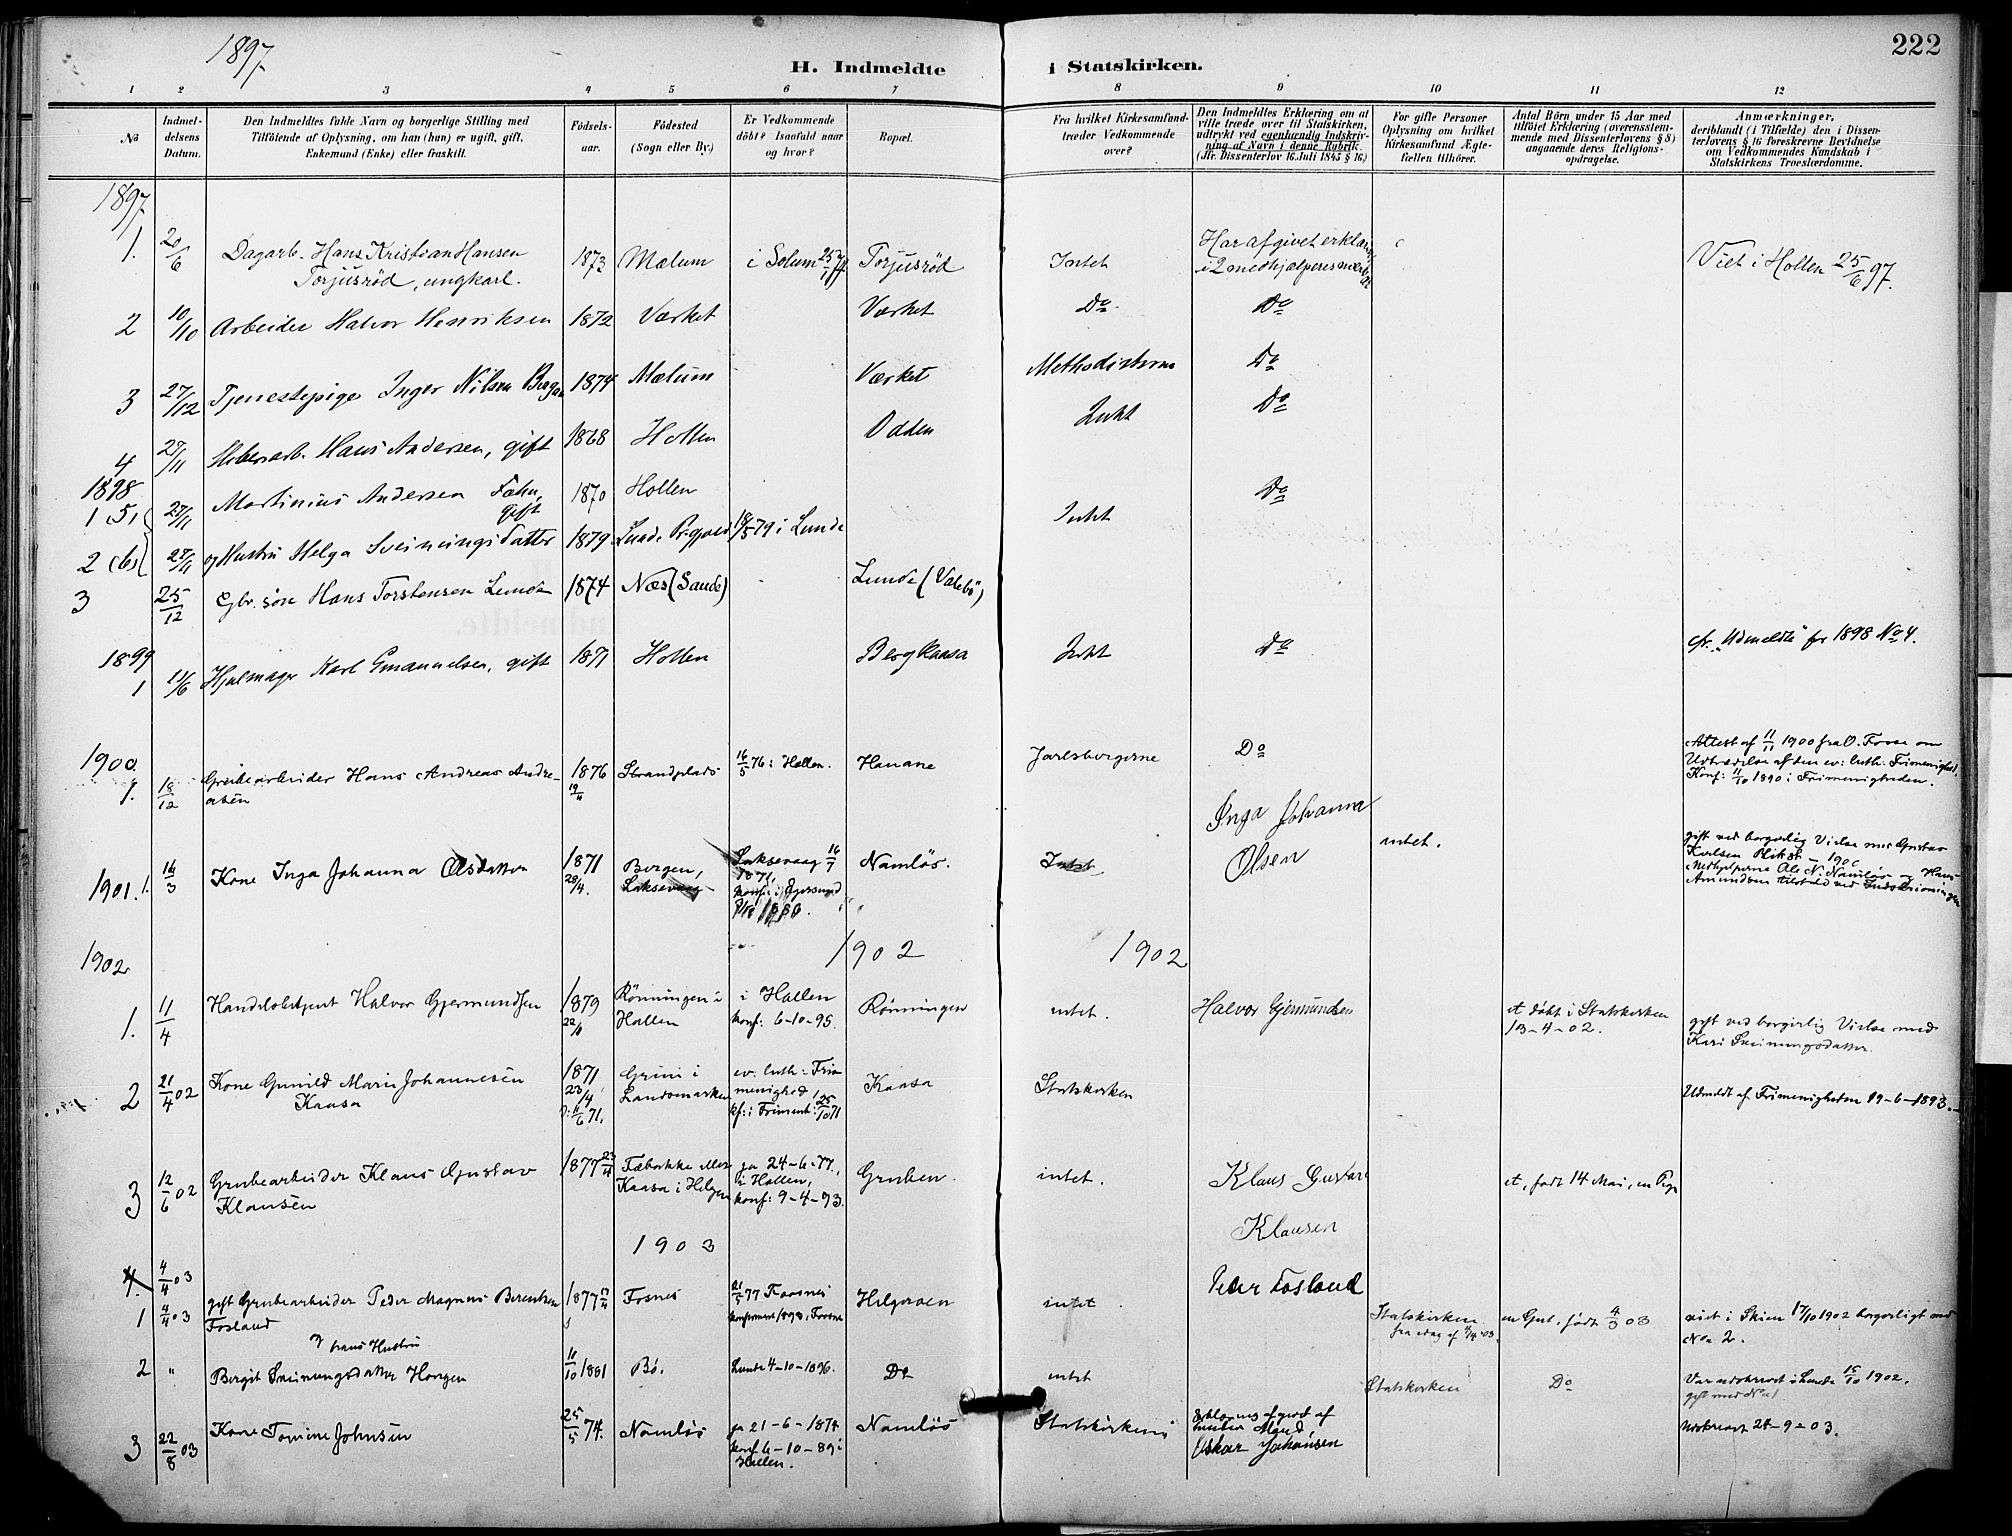 1897.
222
H. Indmeldte i Statskirken.
1 2 3 4 5 6 7 8 9 10 11 12
No
Indmel-
delsens
Datum.
Den Indmeldtes fulde Navn og borgerlige Stilling med
Tilföiende af Oplysning, om han (hun) er ugift, gift,
Enkemand (Enke) eller fraskilt.
Födsels-
aar.
Födested
(Sogn eller By.)
Er Vedkommende
döbt? Isaafald naar
og hvor?
Bopæl.
Fra hvilket Kirkesamfund
træder Vedkommende
over?
Den Indmeldtes Erklæring om at
ville træde over til Statskirken,
udtrykt ved egenhændig Indskriv-
ning af Navn i denne Rubrik.
(Jfr. Dissenterlov 16. Juli 1845 § 16)
For gifte Personer
Oplysning om hvilket
Kirkesamfund Ægte-
fællen tilhörer.
Antal Börn under 15 Aar med
tilföiet Erklæring (overensstem-
mende med Dissenterlovens § 8)
angaaende deres Religions-
opdragelse.
Anmærkninger,
deriblandt (i Tilfælde) den i Dissen-
terlovens § 16 foreskrevne Bevidnelse
om Vedkommendes Kundskab i
Statskirkens Troeslærdomme.
1897.
1. 20/6 Dagarb. Hans Kristian Hansen
Torjusröd, ungkarl.
1873 Mælum i Solum Torjusröd Intet
Har afgivet erklæring
i 2 medhjælperes nærvær
Viet i Hollen 25/6 97.
2 10/10 Arbeider Halvor Henriksen 1872 Værket Værket Do Do
3 27/12 Tjenestepige Inger Nilsen Bergan 1874 Mælum Værket Methodisterne Do
4 27/11 Hans Andersen, gift 1868 Hollen Odden Intet Do
1898
1 (5) 27/11 Martinius Andersen Fæhn,
gift
1870 Hollen Intet Do
2 (6) 27/11 og Hustru Helga Sveinungsdatter 1879 Lunde Prgjæld 18/5 79 i Lunde
3 25/12 Gbr. sön Hans Torstensen Lunde 1874 Næs (Saude) Lunde (Valebö)
1899
1 11/6 Hjulmager Karl Emanuelsen, gift 1871 Hollen Bergkaasa Intet Do
cfr. "Udmeldte" for 1898 No 4.
1900
1. 18/12 Grubearbeider Hans Andreas Andre-
asen
1876
19/4
Strandplads 16/5 76 i Hollen. Hanane Jarlsbergerne Do
Attest af 11/11 1900 fra O. Fosse om
Udtrædelse af den ev: luth: Frimenighed.
Konf: 11/10 1890 i Frimenigheden.
1901. 1. 14/3 Kone Inga Johanna Olsdatter
1871
28/4.
Bergen,
Laksevaag
Laksevaag 16/7
1871,
konf: i
Namlös. Intet
Inga Johanna
Olsen
intet.
gift ved borgerlig Vielse med Gustav
Karlsen 1900
Medhjelperne Ole N. Namlös og Hans
Amundsen tilstede ved
1902 1902 1902
1. 11/4 Handelsbetjent Halvor Gjermundsen
1879
22/
Rönningen i
Hollen
i Hollen
konf: 6-10-95.
Rönningen intet. Halvor Gjermundsen
et döbt i Statskirken
13-4-02.
gift ved borgerlig Vielse med
Kari Sveinungsdatter.
2 21/4 02 Kone Gunild Marie Johannesen
Kaasa
1871
23/4
Grini i
Landsmarken
ev. luth: Fri-
menighed
kf: i Frimenh:
Kaasa Statskirken
Udmeldt af Frimenigheden 19-6-1893.
3 12/6 02 Grubearbeider Klaus Gustav
Klausen
1877 23/4
Kaasa i Helgen
ja 24-6-77,
i Hollen,
konf: 9-4-93.
Gruben. intet.
Klaus Gustav
Klausen
et, födt 14 Mai, en Pige
1903
4. 4/4 03
1 4/4 03 gift Grubearbeider Peder Magnus Berentsen
Fosland
1877 Fosnes
21/5 77 Fosnes
konfirmert 1892, Fosnes
Helgeroen intet. Peder Fosland
Statskirken
fra idag af 4/4 03.
en Gut, födt 4/3 03
viet i Skien 17/10 1902 borgerligt med
No 2.
2 " og hans Hustru
Bergit Sveinungsdatter Haugen
11/10 1881 Bö. Lunde 4-10-1896. Do intet Statskirken Do
Var udskrevet i Lunde 15/10 1902.
gift med No 1
3 22/8 03 Kone Tomine Johnsen
25/5 74. Namlös
ja 21-6-1874
konf 6-10-89 i
Hollen.
Namlös Statskirken
Erklæring afgivet af
hendes Mand
Oskar Johansen
Udskrevet 24-9-03.